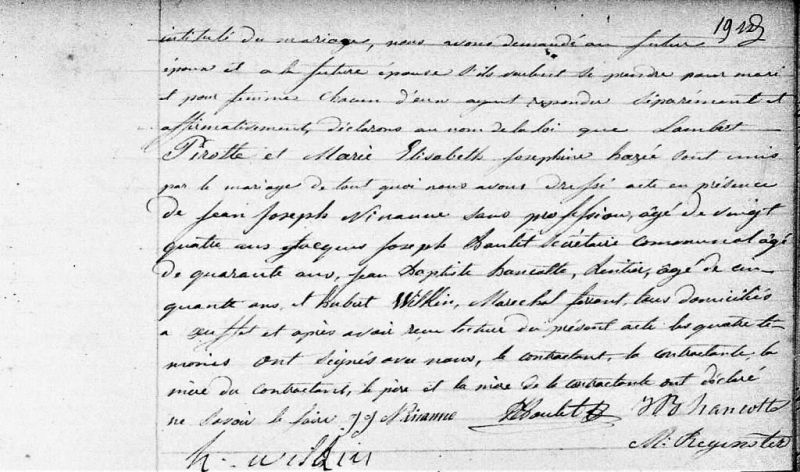 intitulé du mariage, nous avons demandé au futur
époux et a la future épouse s'ils veulent se prendre pour mari
et pour femme chacun d'eux ayant repondu séparément et
affirmativement, déclarons au nom de la loi que Lambert
Pirotte et Marie Elisabeth Josephine hazée sont unis
par le mariage de tout quoi nous avons dressé acte en présence
de Jean Joseph Ninanne sans profession, âgé de vingt
quatre ans Jacques Joseph Boulet secrétaire communal âgé
de quarante ans, Jean Baptiste hancotte, Rentier, âgé de cin-
quante ans, et Hubert Wilkin, Marechal ferrant, tous domiciliés
a et après avoir reçu lecture du présent acte les quatre te-
moins ont signés avec nous, le contractant, la contractante, la
mère du contractant, le père et la mère de la contractante ont déclaré
ne savoir le faire JJ Ninanne Boulet JB hancotte
M. Reginster
h. wilkin